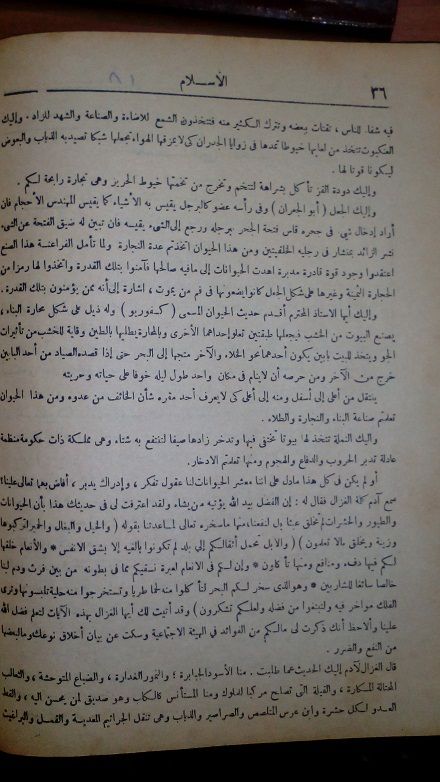 ٣٦
الأســلام
٨١
فيه شفاء للناس ، تقتات بعضه وتترك الكثير منه فتتخذون الشمع للاضاءة والصناعة والشهد للزاد . واليك
العنكبوت تتخذ من لعابها خيوطا تمدها فى زوايا الجدران كى لا يمزقها الهواء تجعلها شبكا تصيد به الذباب والبعوض
ليكونا قوتا لها .
واليك دودة القز تأكل بشراهة لتتخم وتخرج من تخمتها خيوط الحرير وهى تجارة رابحة لكم .
واليك الجعل ( أبو الجعران ) وفى رأسه عضو كالبرجل يقيس به الأشياء كما يقيس المهندس الأحجام فان
أراد إدخال شىء فى جحره قاس فتحة الجحر ببرجله ورجع إلى الشىء يقيسه فان تبين له ضيق الفتحة عن الشىء
نشر الزائد بمنشار فى رجليه الخلفيتين ومن هذا الحيوان اتخذتم عدة النجارة ولما تأمل الفراعنة هذا الصنع
اعتقدوا وجود قوة قادرة مدبرة اهدت الحيوانات إلى مافيه صالحها فآمنوا بتلك القدرة واتخذوا لها رمزا من
الحجارة الثمينة وغيرها على شكل الجعل كانوا يضعونها فى فم من يموت ، اشارة إلى أنه ممن يؤمنون بتلك القدرة .
واليك أيها الاستاذ المحترم أقدم حديث الحيوان المسمى ( كسفوريو ) وله ذيل على شكل محارة البناء ،
يصنع البيوت من الخشب فيجعلها طبقتين تعلو إحداهما الأخرى وبالمحارة يطليها بالطين وقاية للخشب من تأثيرات
الجو ويتخذ للبيت بابين يكون أحدهما نحو الخلاء والآخر متجها إلى البحر حتى إذا قصده الصياد من أحد البابين
خرج من الآخر ومن حرصه أن لاينام فى مكان واحد طول ليله خوفا على حياته وحريته
ينتقل من أعلى إلى أسفل ومنه إلى أعلى كى لايعرف أحد مقره شأن الخائف من عدوه ومن هذا الحيوان
تعلمتم صناعة البناء والنجارة والطلاء .
واليك النملة تتخذ لها بيوتا تختفى فيها وتدخر زادها صيفا لتنتفع به شتاء وهى مملكة ذات حكومة منظمة
عادلة تدير الحروب والدفاع والهجوم ومنها تعلمتم الادخار .
أو لم يكن فى كل هذا مادل على اننا معشر الحيوانات لنا عقول تفكر ، وإدراك يدبر ، أفاض بهما تعالى علينا؟
سمع آدم كلة الغزال فقال له : إن الفضل بيد الله يؤتيه من يشاء ولقد اعترفت لى فى حديثك هذا بأن الحيوانات
والطيور والحشرات لم تخلق عبثا بل لنفعنا منها ماسخره تعالى لمساعدتنا بقوله ( والخيل والبغال والحمير لتركبوها
وزينة ويخلق مالا تعلمون ) ( والابل تحمل أثقالكم إلى بلد لم تكونوا بالغيه إلا بشق الانفس * والأنعام خلقها
لكم فيها دفء ومنافع ومنها تأكلون * وإن لكم فى الانعام لعبرة نسقيكم مما فى بطونه من بين فرث ودم لبنا
خالصا سائغا للشاربين * وهو الذى سخر لكم البحر لتأكلوا منه لحما طريا وتستخرجوا منه حلية تلبسونها وترى
الفلك مواخر فيه ولتبتغوا من فضله ولعلكم تشكرون ) وقد أتيت لك أيها الغزال بهذه الآيات لتعلم فضل الله
علينا وألاحظ أنك ذكرت لى مالكم من الفوائد فى الهيئة الاجتماعية وسكت عن بيان أخلاق نوعك وما لبعضها
من النفع والضرر .
قال الغزال لآدم إليك الحديث عما طلبت . منا الأسود الجبابرة ، والنمور الغدارة ، والضباع المتوحشة ، والثعالب
المحتالة المكارة ، والفيلة التى تصلح مركبا للملوك ومنا المستأنس كالكلاب وهو صديق لمن يحسن اليه ، والقط
العدو لكل حشرة وابن عرس المتلصص والصراصير والذباب وهى تنقل الجراثيم المعدية والقمل والبراغيث